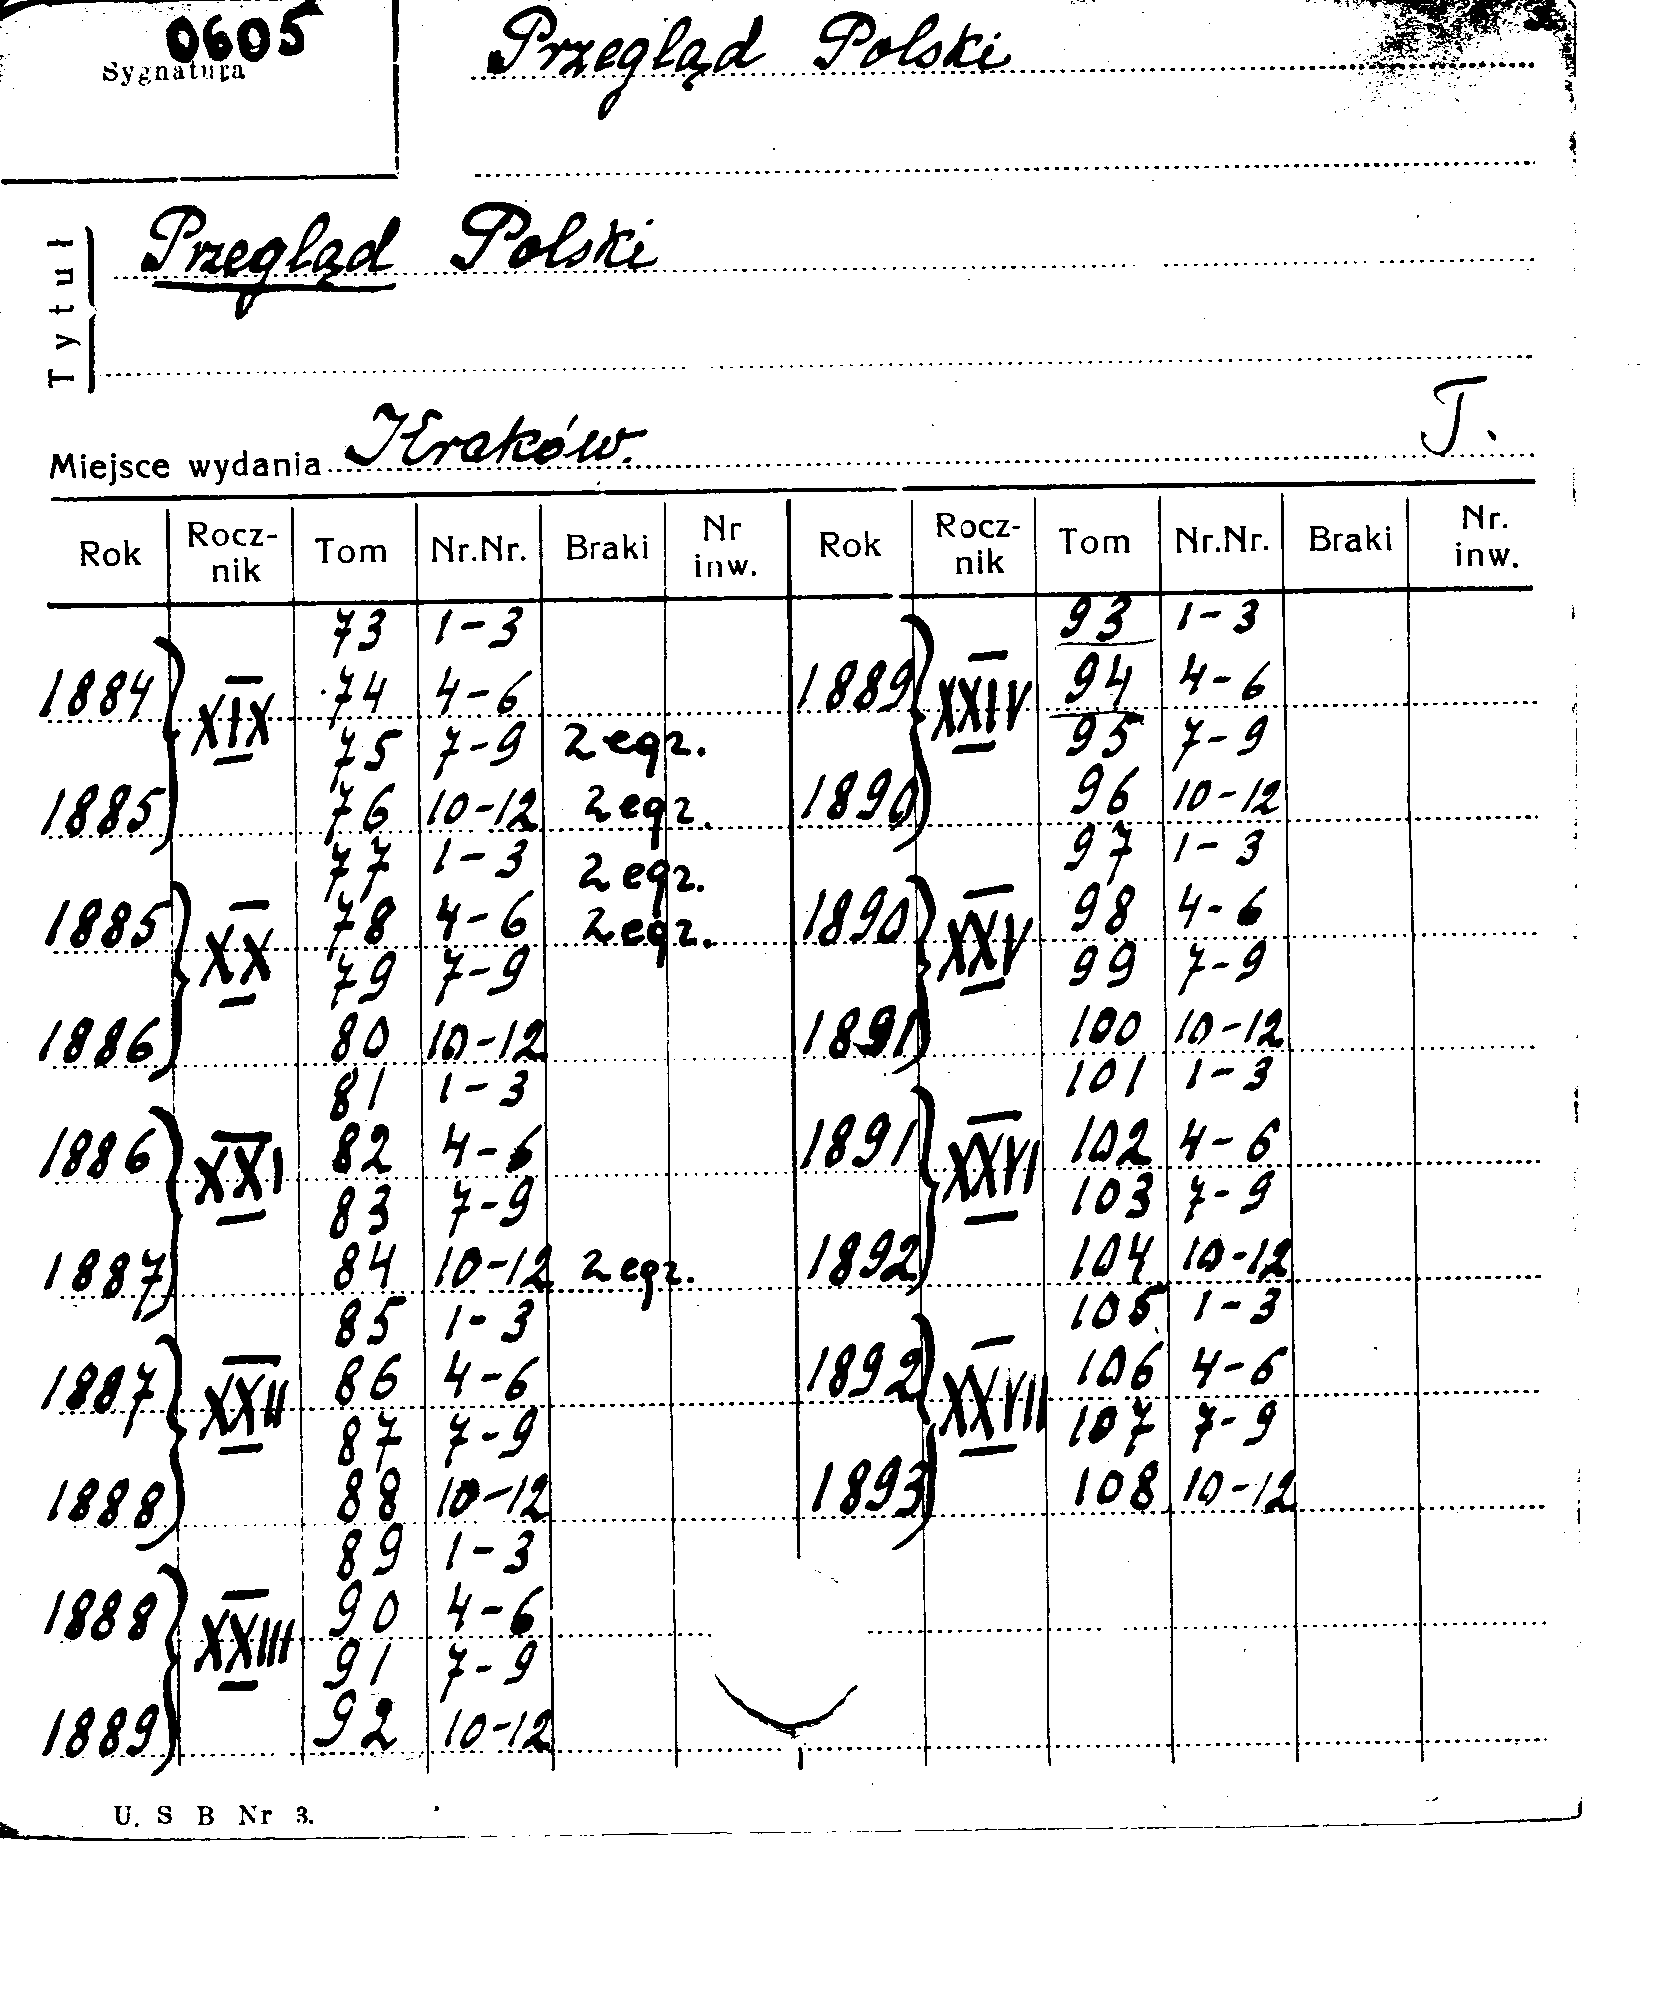 0605
Sygnatura
Przegląd Polski
Tytuł
Przegląd Polski
Miejsce wydania Kraków. T.
Rok Rocz-nik Tom Nr.Nr. Braki Nr inw. Rok Rocz-nik Tom Nr.Nr. Braki Nr. inw.
73 1-3 93 1-3
1884 XIX 74 4-6 1889 XXIV 94 4-6
75 7-9 2 egz. 95 7-9
1885 76 10-12 2 egz. 1890 96 10-12
77 1-3 2 egz. 97 1-3
1885 XX 78 4-6 2 egz. 1890 XXV 98 4-6
79 7-9 99 7-9
1886 80 10-12 1891 100 10-12
81 1-3 101 1-3
1886 XXI 82 4-6 1891 XXVI 102 4-6
83 7-9 103 7-9
1887 84 10-12 2 egz. 1892 104 10-12
85 1-3 105 1-3
1887 XXII 86 4-6 1892 XXVII 106 4-6
87 7-9 107 7-9
1888 88 10-12 1893 108 10-12
89 1-3
1888 XXIII 90 4-6
91 7-9
1889 92 10-12
U. S B Nr 3.